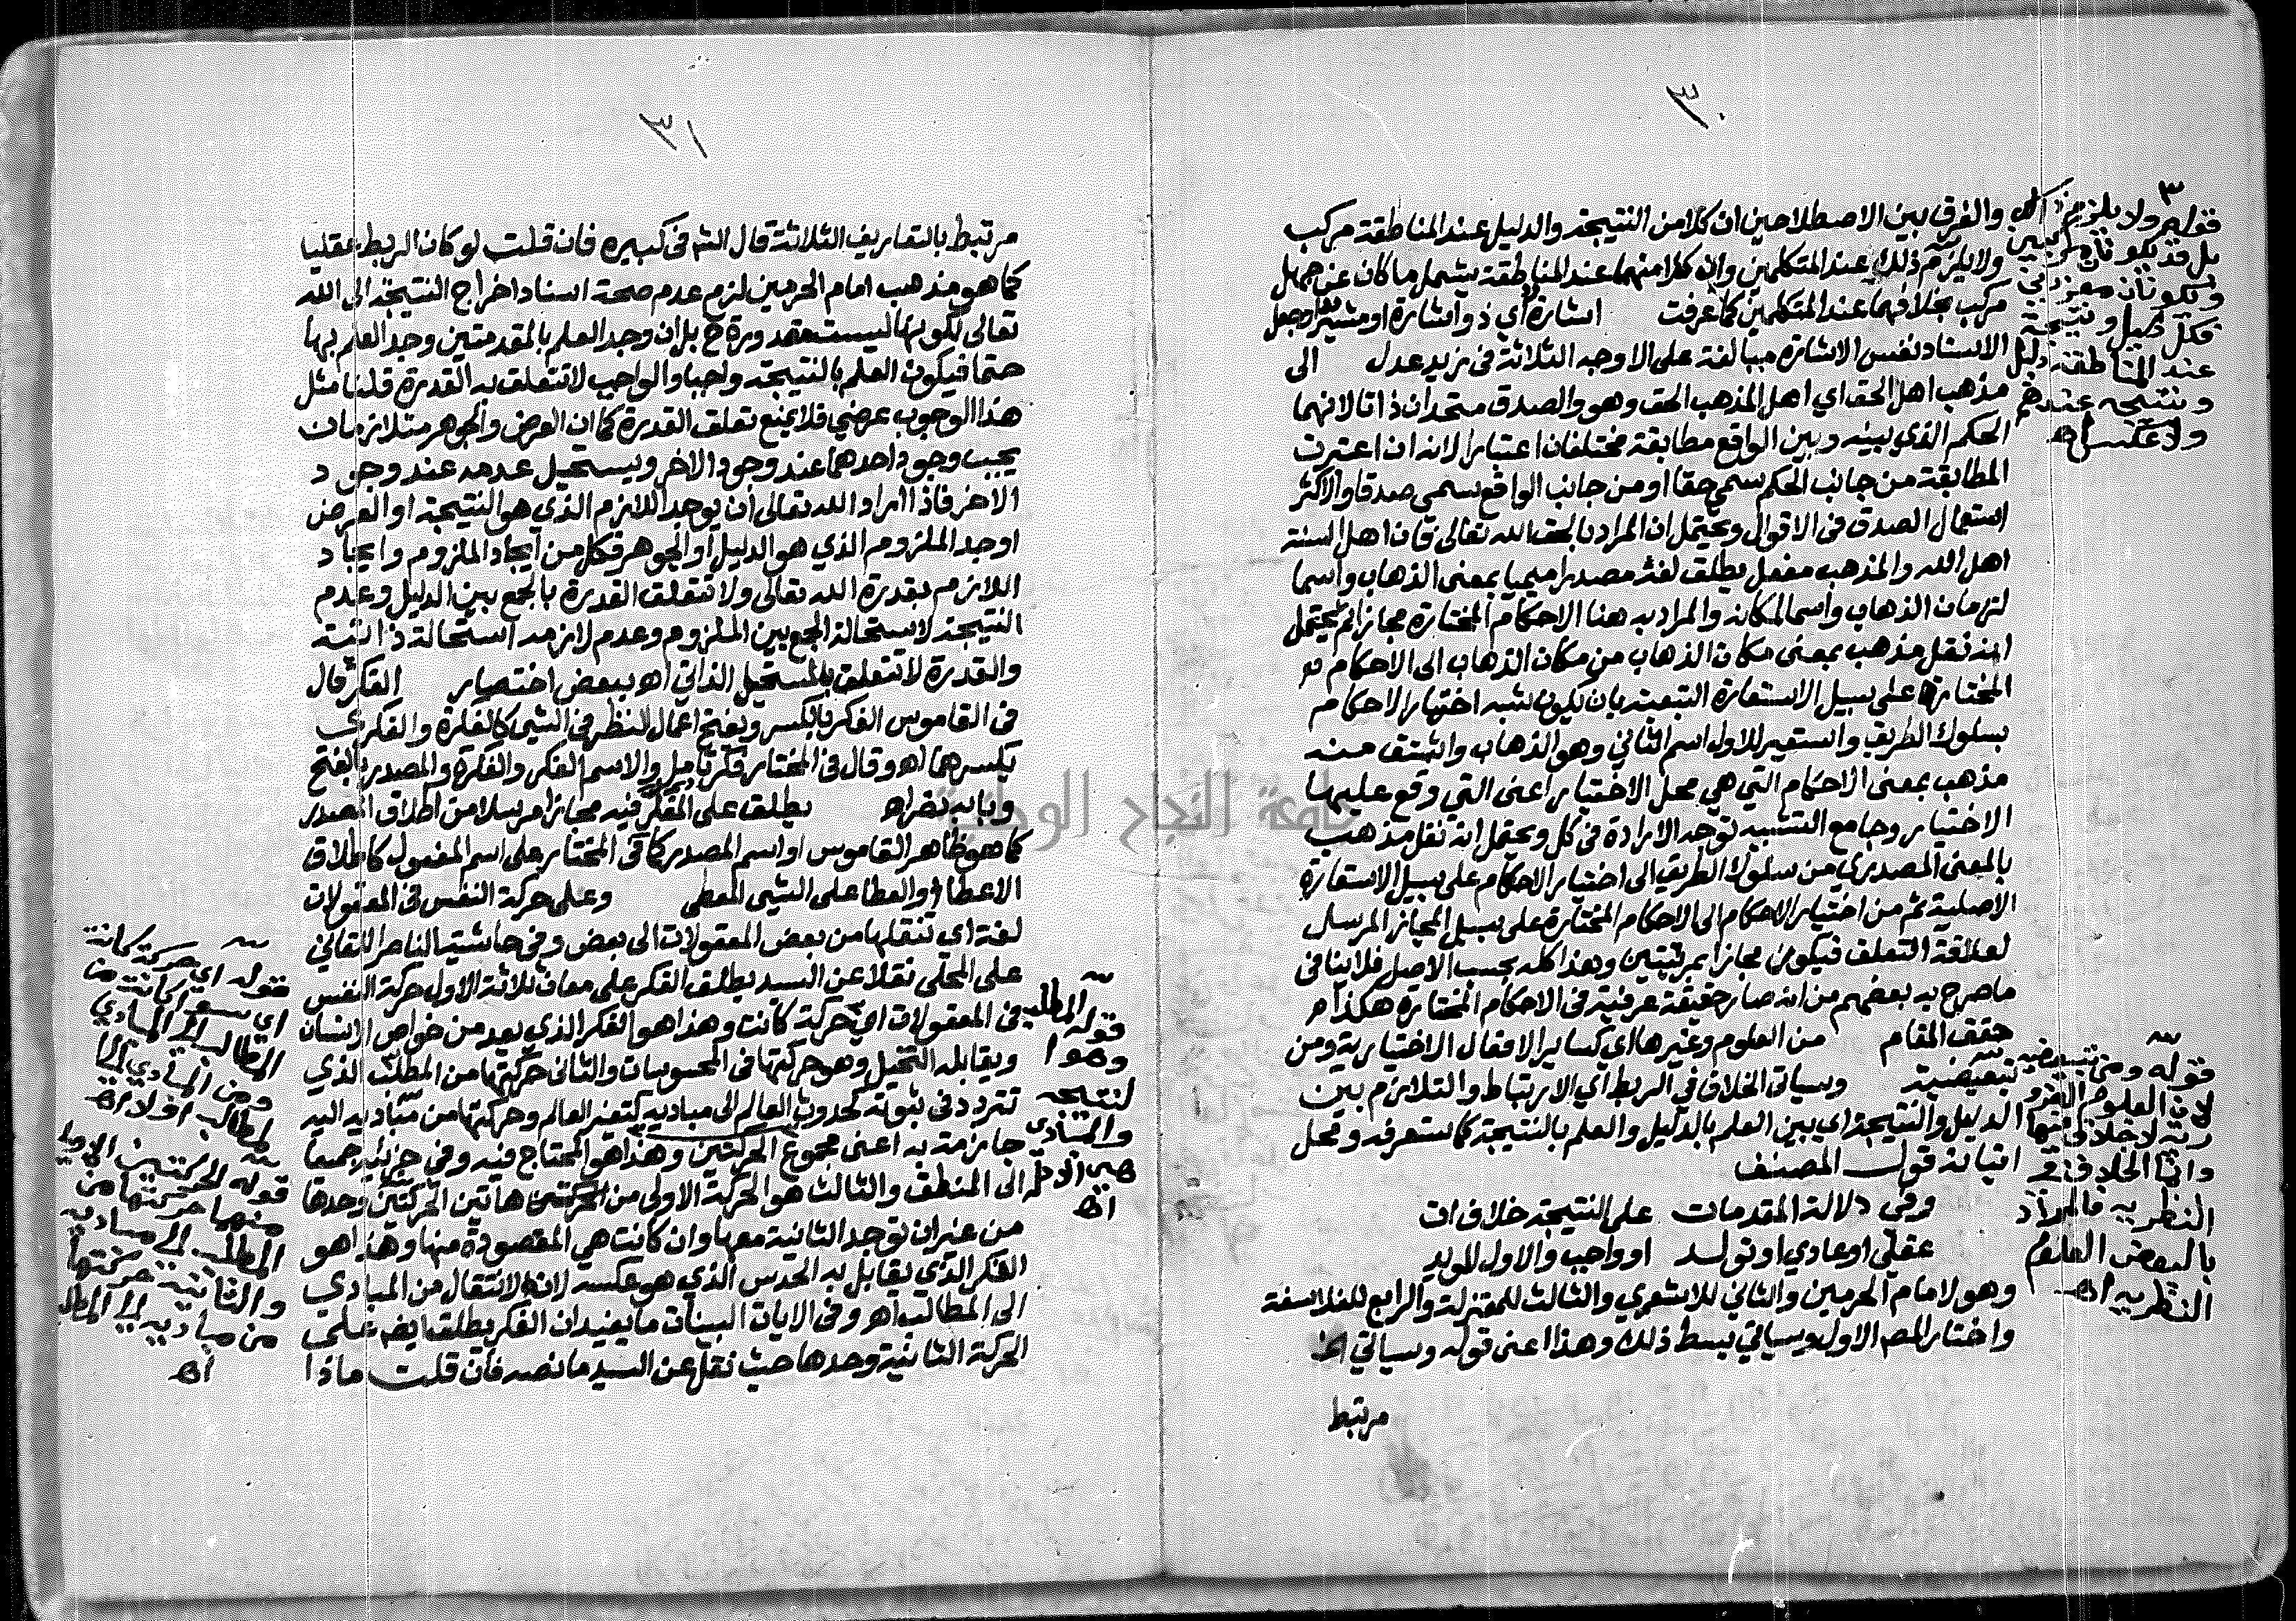 ٣٠
والفرق بين الاصطلاحين ان كلا من النتيجة والدليل عند المناطقة مركب
ولا يلزم ذلك عند المتكلمين وان كلا منهما عند المناطقة يشمل ما كان عن جهل
مركب بخلافهما عند المتكلمين كما عرفت اشارة اي ذو اشارة او مشير او جعل
الاسناد نفس الاشارة مبالغة على الاوجه الثلاثة في زيد عدل الى
مذهب اهل الحق اي اهل المذهب الحق وهو والصدق متحدان ذاتا لانهما
الحكم الذي بينه وبين الواقع مطابقة مختلفان اعتبارا لانه ان اعتبرت
المطابقة من جانب الحكم سمي حقا او من جانب الواقع سمي صدقا والاكثر
استعمال الصدق في الاقوال ويحتمل ان المراد بالحق الله تعالى فان اهل السنة
اهل الله والمذهب مفعل يطلق لغة مصدرا ميميا بمعنى الذهاب واسما
لزمان الذهاب واسما لمكانه والمراد به هنا الاحكام المختارة مجازا ثم يحتمل
انه نقل مذهب بمعنى مكان الذهاب من مكان الذهاب الى الاحكام
المختارة على سبيل الاستعارة التبعية بان يكون شبه اختيار الاحكام
بسلوك الطريق واستعير للاول اسم الثاني وهو الذهاب واشتق منه
مذهب بمعنى الاحكام التي هي محل الاختيار اعنى التي وقع عليها
الاختيار وجامع التشبيه توجه الارادة في كل ويحتمل انه نقل مذهب
بالمعنى المصدري من سلوك الطريق الى اختيار الاحكام على سبيل الاستعارة
الاصلية ثم من اختيار الاحكام الى الاحكام المختارة على سبيل المجاز المرسل
لعلاقة التعلق فيكون مجازا بمرتبتين وهذا كله بحسب الاصل فلا ينافي
ما صرح به بعضهم من انه صار حقيقة عرفية في الاحكام المختارة هكذا
حقق المقام من العلوم وغيرها اي كسائر الافعال الاختيارية ومن
تبعيضية وسياتي الخلاف في الربط اي الارتباط والتلازم بين
الدليل والنتيجة اي بين العلم بالدليل والعلم بالنتيجة كما ستعرفه ومحل
اتيانه قول المصنف
وفي دلالة المقدمات على النتيجة خلاف ات
عقلي او عادي او تولد او واجب والاول المويد
وهو لامام الحرمين والثاني للاشعري والثالث للمعتزلة والرابع للفلاسفة
واختار المصم الاول وسياتي بسط ذلك وهذا اعنى قوله وسياتي الخ
مرتبط
قوله ولا يلزم ذلك
بل قد يكونان مركبين
ويكونان مفردين
فكل دليل ونتيجة
عند المناطقة دليل
ونتيجه عندهم
ولا عكس اهـ
قوله ومن تبعيضية
لان العلوم الضرو
رية لا خلاف فيها
وانما الخلاف في
النظريه فالمراد
بالبعض العلوم
النظريه اهـ
٣١
مرتبط بالتعاريف الثلاثة قال الشم في كبيره فان قلت لو كان الربط عقليا
كما هو مذهب امام الحرمين لزم عدم صحة اسناد اخراج النتيجة الى الله
تعالى لكونها ليست مقدورة ح بل ان وجد العلم بالمقدمتين وجد العلم بها
حتما فيكون العلم بالنتيجة واجبا والواجب لا تتعلق به القدرة قلنا مثل
هذا الوجوب عرضي فلا يمنع تعلق القدرة كما ان العرض والجوهر متلازمان
يجب وجود احدهما عند وجود الاخر ويستحيل عدمه عند وجود
الاخر فاذا اراد الله تعالى ان يوجد اللازم الذي هو النتيجة او العرض
اوجد الملزوم الذي هو الدليل او الجوهر فكل من ايجاد الملزوم وايجاد
اللازم بقدرة الله تعالى ولا تتعلق القدرة بالجمع بين الدليل وعدم
النتيجة لاستحالة الجمع بين الملزوم وعدم لازمه استحالة ذاتية
والقدرة لا تتعلق بالمستحيل الذاتي اهـ ببعض اختصار الفكر قال
في القاموس الفكر بالكسر ويفتح اعمال النظر في الشي كالفكرة والفكرى
بكسرهما اهـ وقال في المختار فكر تامل والاسم الفكر والفكرة والمصدر بالفتح
وبابه نصر اهـ يطلق على المفكر فيه مجازا مرسلا من اطلاق المصدر
كما هو ظاهر القاموس او اسم المصدر كما في المختار على اسم المفعول كاطلاق
الاعطاء والعطا على الشي المعطى وعلى حركة النفس في المعقولات
لغة اي تنقلها من بعض المعقولات الى بعض وفي حاشية الناصر اللقاني
على المحلي نقلا عن السيد يطلق الفكر على معان ثلاثة الاول حركة النفس
في المعقولات اي حركة كانت وهذا هو الفكر الذي يعد من خواص الانسان
ويقابله التخيل وهو حركتها في المحسوسات والثاني حركتها من المطلب الذي
تتردد في ثبوته كحدوث العالم الى مباديه كتغير العالم وحركتها من مباديه اليه
جازمة به اعنى مجموع الحركتين وهذا هو المحتاج فيه وفي جزئيه جميعا
الى المنطق والثالث هو الحركة الاولى من هاتين الحركتين وحدها
من غير ان توجد الثانية معها وان كانت هي المقصودة منها وهذا هو
الفكر الذي يقابل به الحدس الذي هو عكسه لانه الانتقال من المبادي
الى المطالب اهـ وفي الايات البينات ما يفيد ان الفكر يطلق ايضا على
الحركة الثانية وحدها حيث نقل عن السيد ما نصه فان قلت ماذا
قوله المطلب
وهوا
لنتيجه
والمبادي
هي الادلة
اهـ
قوله اي حركة كانت
اي سوا كانت من
المطالب الى المبادي
ومن المبادي الى
المطالب اولا اهـ
قوله الحركتين الاولى
منهما حركتها من
المطلب الى مباديه
والثانية حركتها
من مباديه الى المطلب
اهـ
جامعة النجاح الوطنية